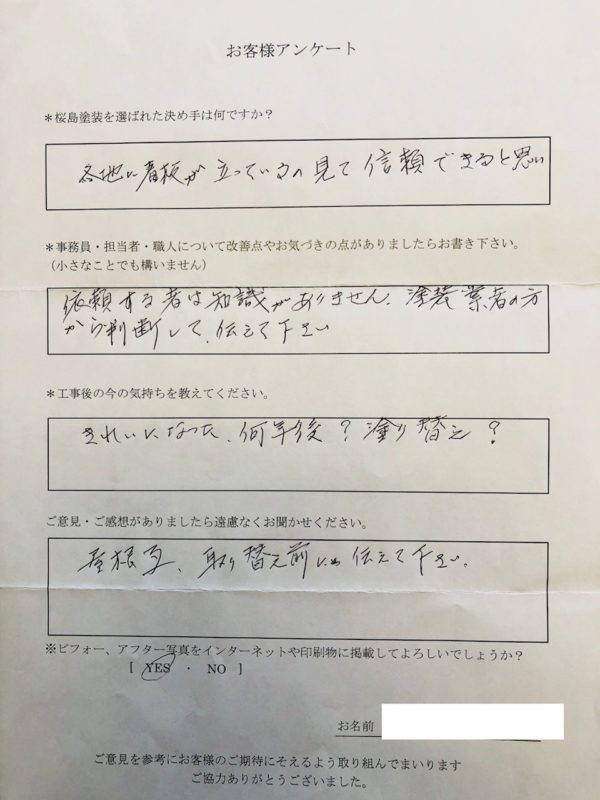 お客様アンケート
＊桜島塗装を選ばれた決め手は何ですか？
各地に看板が立っているの見て信頼できると思い
＊事務員・担当者・職人について改善点やお気づきの点がありましたらお書き下さい。
（小さなことでも構いません）
依頼する者は知識がありません、塗装業者の方
から判断して、伝えて下さい
＊工事後の今の気持ちを教えてください。
きれいになった、何年後？塗り替え？
ご意見・ご感想がありましたら遠慮なくお聞かせください。
屋根瓦、取り替え前に 伝えて下さい。
※ビフォー、アフター写真をインターネットや印刷物に掲載してよろしいでしょうか？
［ YES ・ NO ］
お名前
ご意見を参考にお客様のご期待にそえるよう取り組んでまいります
ご協力ありがとうございました。